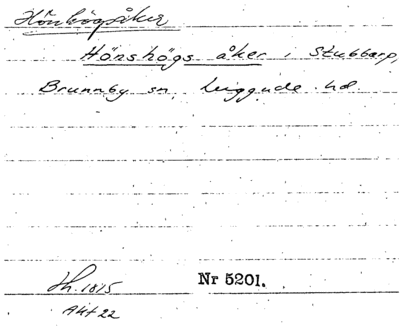 Hönhögsåker
Hönshögs åker i Stubbarp,
Brunnby sn, Luggude hd.
Nr 5201.
Sk. 1815
Akt 22